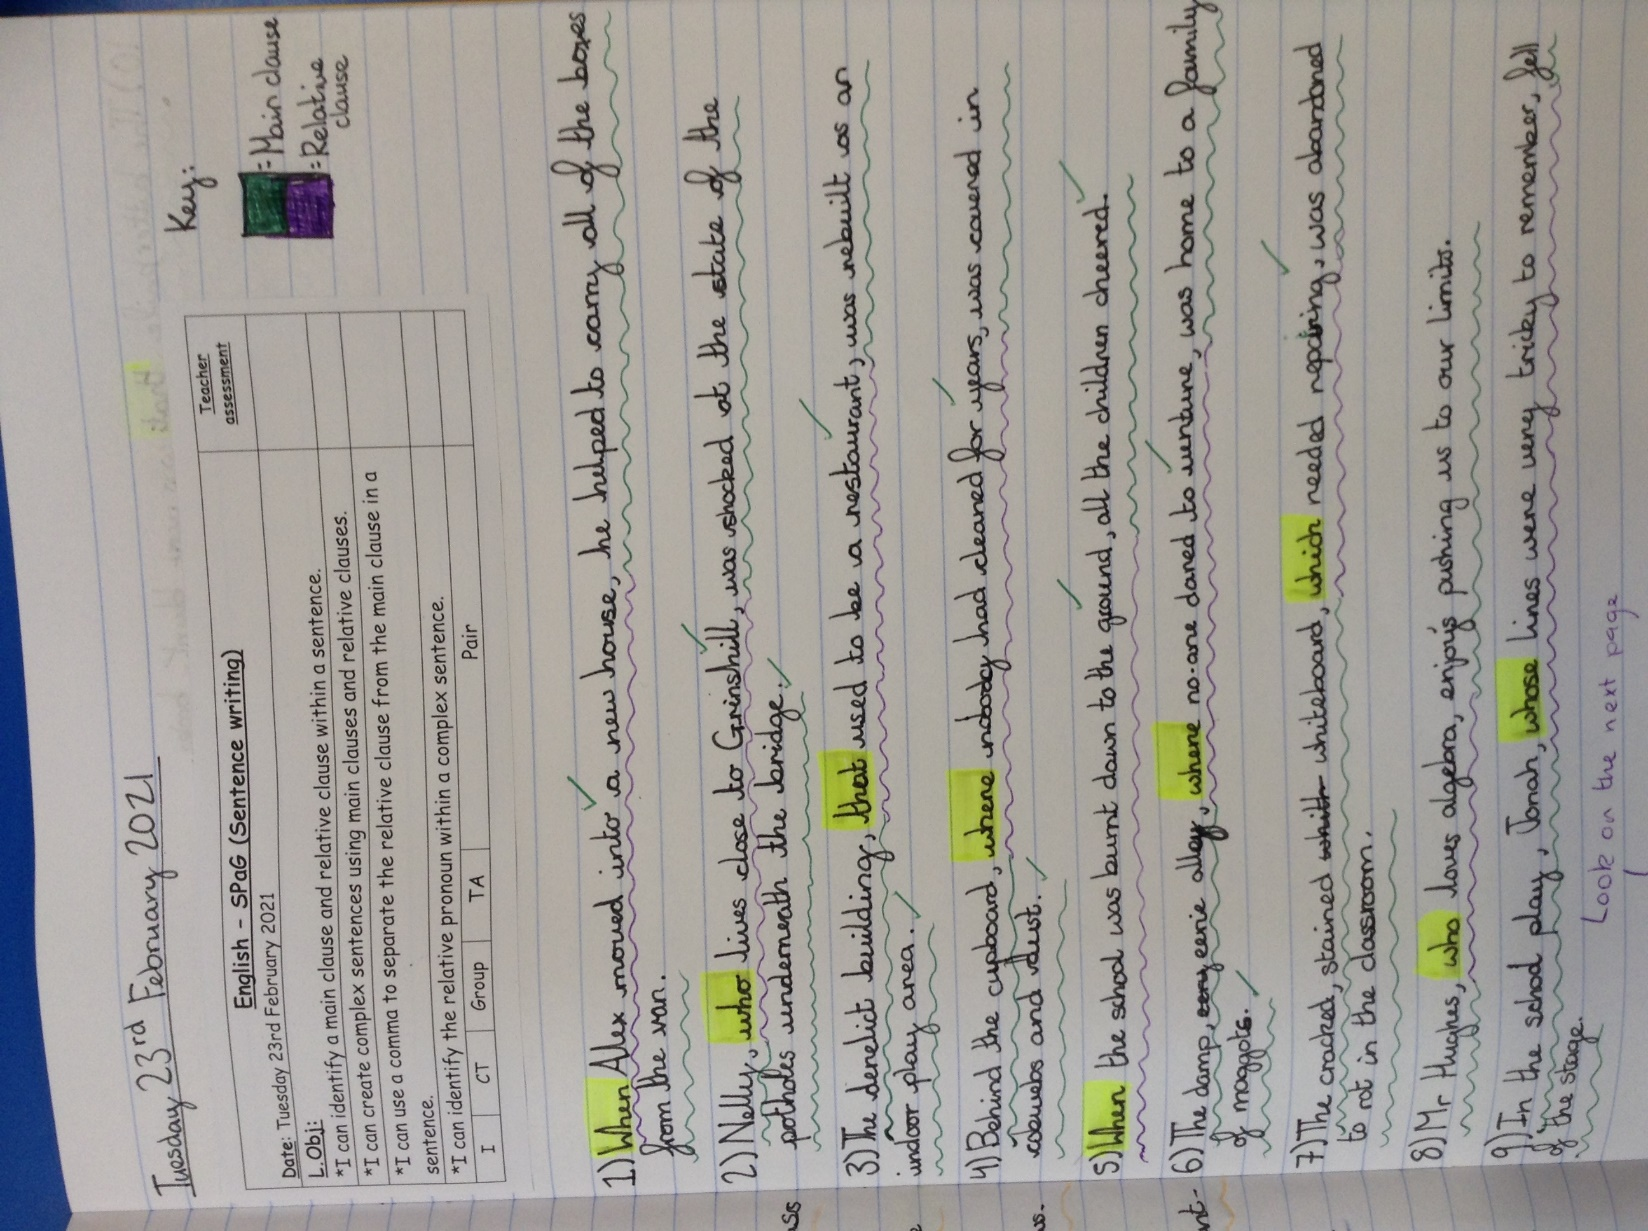 Tuesday 23rd February 2021
Key:
= Main clause
= Relative
clause
English - SPaG (Sentence writing)
Teacher
assessment
Date: Tuesday 23rd February 2021
L.Obj:
*I can identify a main clause and relative clause within a sentence.
*I can create complex sentences using main clauses and relative clauses.
*I can use a comma to separate the relative clause from the main clause in a
sentence.
*I can identify the relative pronoun within a complex sentence.
I CT Group TA Pair
1) When Alex moved into a new house, he helped to carry all of the boxes
from the van.
2) Nelly, who lives close to Grinshill, was shocked at the state of the
potholes underneath the bridge.
3) The derelict building, that used to be a restaurant, was rebuilt as an
indoor play area.
4) Behind the cupboard, where nobody had cleaned for years, was covered in
cobwebs and dust.
5) When the school was burnt down to the ground, all the children cheered.
6) The damp, eery eerie alley, where no-one dared to venture, was home to a family
of maggots.
7) The cracked, stained whith whiteboard, which needed repairing, was abandoned
to rot in the classroom.
8) Mr Hughes, who loves algebra, enjoys pushing us to our limits.
9) In the school play, Jonah, whose lines were very tricky to remember, fell
of the stage.
Look on the next page
ass
ws.
nt-